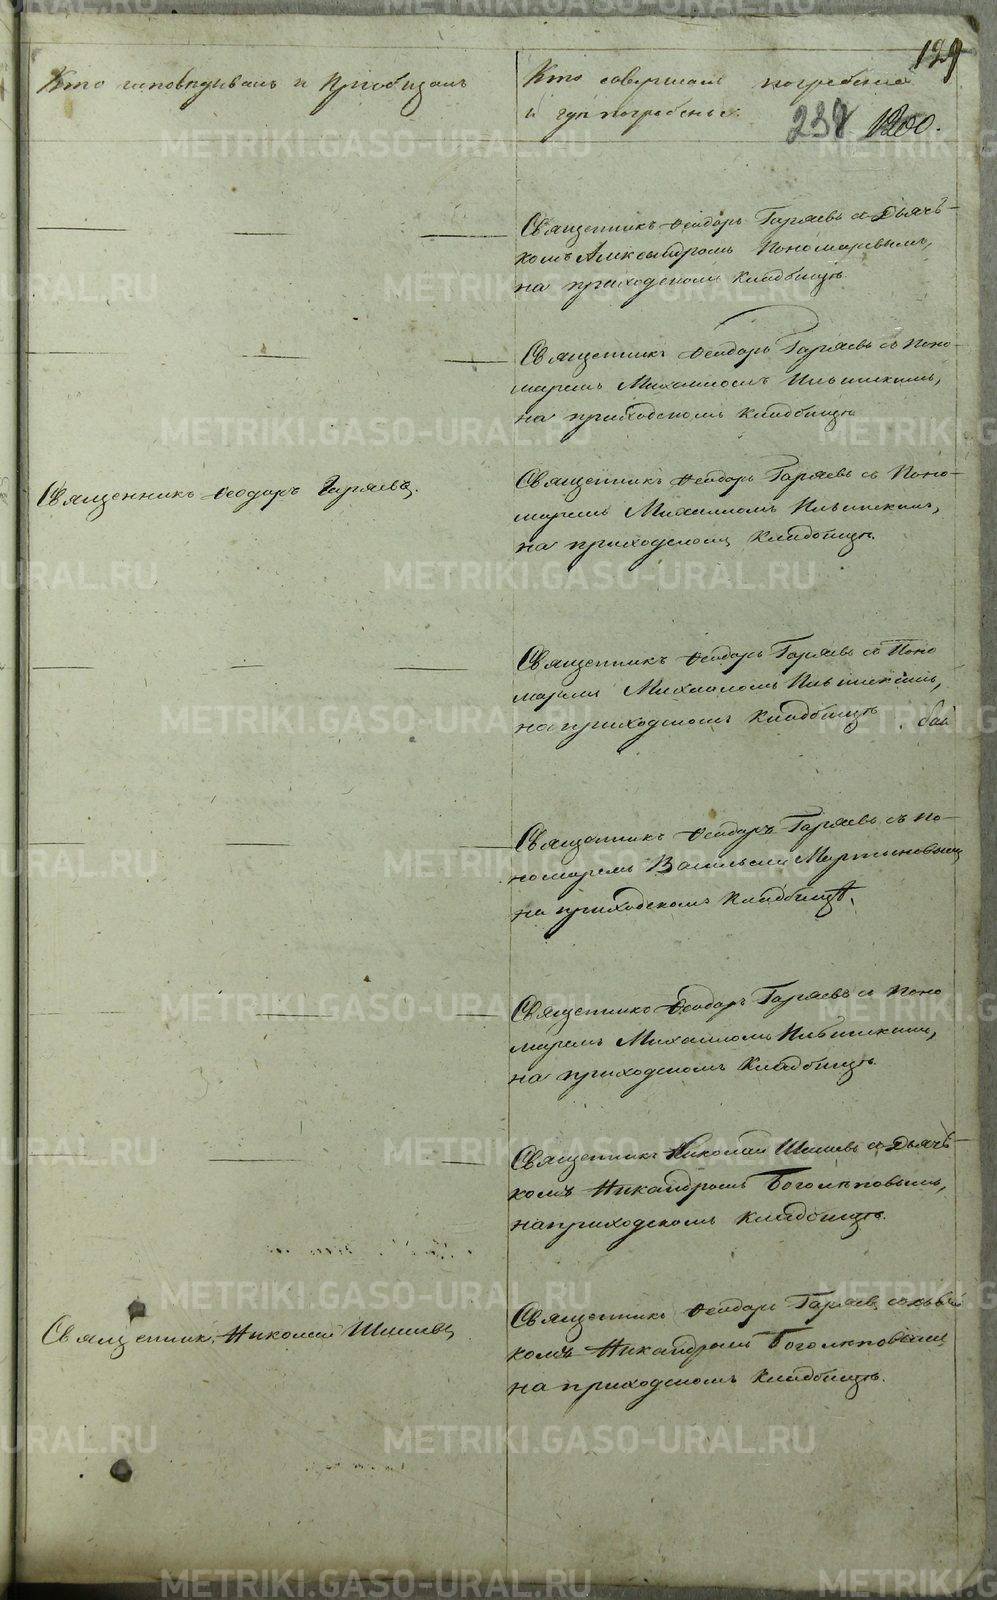 129
Кто исповѣдывалъ и Приобщалъ
Кто совершалъ погребенiе
и гдѣ погребены:
238 1200.
Священникъ Ѳеодоръ Гаряевъ съ Дьячь-
комъ Александромъ Пономаревымъ,
на приходскомъ Кладбищѣ.
Священникъ Ѳеодоръ Гаряевъ съ Поно-
маремъ Михаиломъ Ильинскимъ,
на приходскомъ Кладбищѣ
Священникъ Ѳеодоръ Гаряевъ.
Священникъ Ѳеодоръ Гаряевъ съ Поно-
маремъ Михаиломъ Ильинскимъ,
на приходскомъ Кладбищѣ.
Священникъ Ѳеодоръ Гаряевъ съ Поно
маремъ Михаиломъ Ильинскимъ,
на приходскомъ Кладбищѣ
Священникъ Ѳеодоръ Гаряевъ съ По-
номаремъ Васильемъ Мартыновымъ
на приходскомъ Кладбищѣ.
Священникъ Ѳеодоръ Гаряевъ съ Поно
маремъ Михаиломъ Ильинскимъ,
на приходскомъ Кладбищѣ.
Священникъ Николай Шишевъ съ Дьячь-
комъ Никандромъ Боголѣповымъ,
на приходскомъ Кладбищѣ.
Священникъ Николай Шишевъ
Священникъ Ѳеодоръ Гаряевъ
комъ Никандромъ Боголѣповымъ
на приходскомъ Кладбищѣ.
METRIKI.GASO-URAL.RU